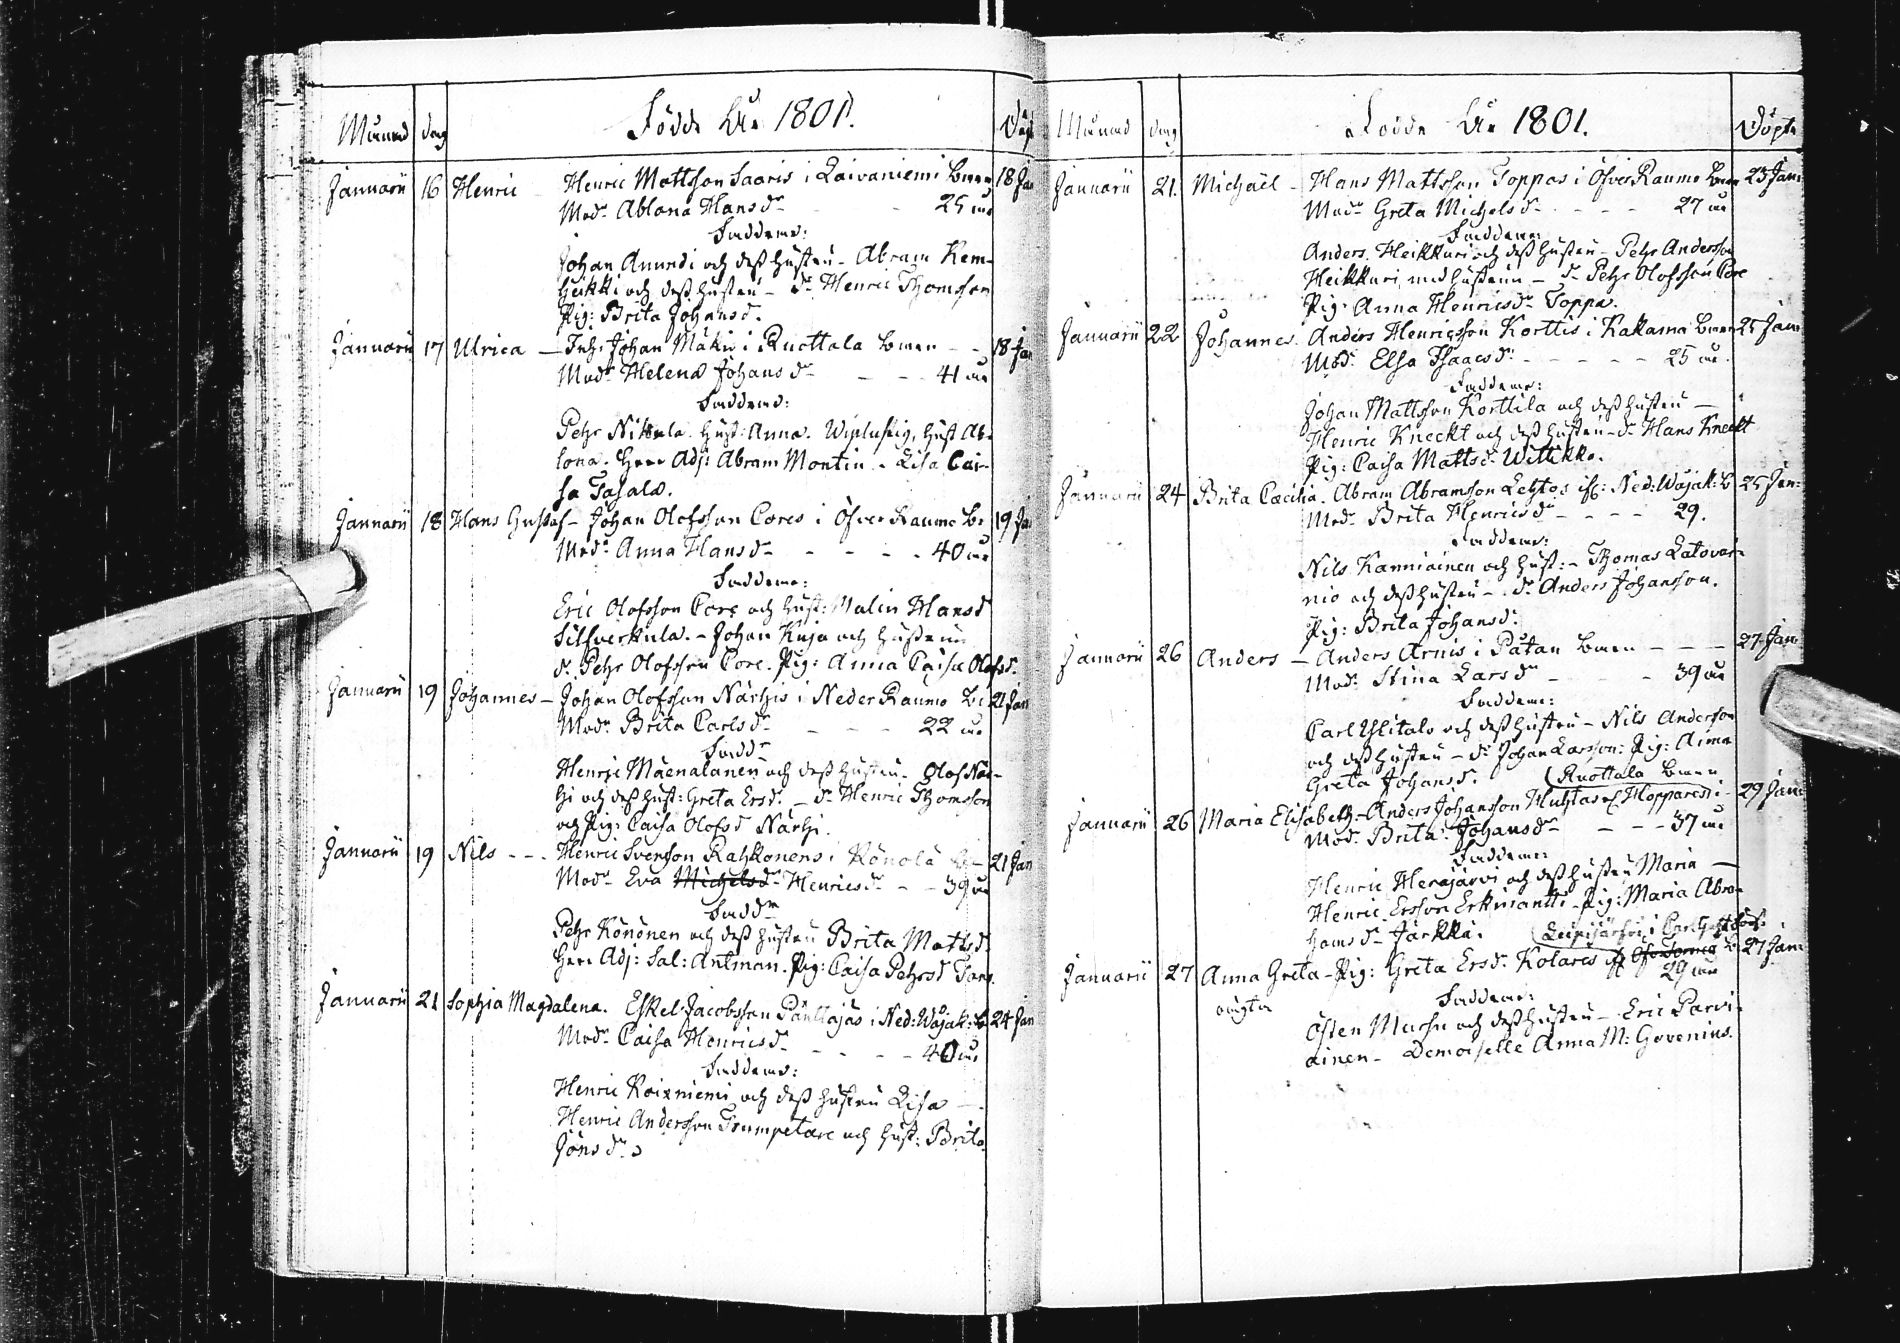 Månad dag Födde År 1801. Döpt
Januarii 16 Henric – Henric Mattsson Saaris i Laivaniemi barn 18 Jan
Modr Ablona Hansdr - - 25 år
Faddrar:
Johan Anundi och dess hustru – Abram Kem-
heikki och dess hustru – dr Henric Thomsson
Pig: Brita Johansd.
Januarii 17 Ulrica – Inh: Johan Mäkis i Ruottala barn - - 18 Jan
Modr Helena Johansdr - - - 41 år
Faddrar:
Pehr Nikula. hust: Anna. hust Ab-
lona. Herr Adj: Abram Montin. Lisa Cai-
sa
Januarii 18 Hans Gustaf – Johan Olofsson Cores i Öfver Raumo b: 19 Jan
Modr Anna Hansdr - - - - 40 år
Faddrar:
Eric Olofsson Core och hust: Malin Hansd
Silfverkula. – Johan Kuja och hustrun
dr Pehr Olofsson Core. Pig: Anna Caisa Olofsd.
Januarii 19 Johannes – Johan Olofsson Närhis i Neder Raumo b: 21 Jan
Modr Brita Carlsdr - - - 22 år
Faddr
Henric Mäenalanen och dess hustru. Olof När-
hi och dess hust: Greta Ersd. – dr Henric Thomsson
och Pig: Caisa Olofsd Närhi.
Januarii 19 Nils - - - Henric Svensson Rahkonens i Könölä b – 21 Jan
Modr Eva Michelsdr Henricsdr - - 39 år
Faddr
Pehr Könönen och dess hustru Brita Mattsd
Herr Adj: Sal: Antman. Pig: Caisa Pehrsd
Januarii 21 Sophia Magdalena. Eskel Jacobsson Panttajas i Ned: Wojak: b 24 Jan
Modr Caisa Henricsdr - - - - 40 år
Faddrar:
Henric Koivuniemi och dess hustru Lisa –
Henric Andersson Trumpetare och hust: Brita
Jönsdr
Månad dag Födde År 1801. Döpte
Januarii 21. Michaël – Hans Mattsson Toppas i Öfver Raumo barn 23 Jan:
Modr Greta Michelsdr - - - - 27 år
Faddrar:
Anders Heikkuri och dess hustru – Pehr Andersson
Heikkuri med hustrun – dr Pehr Olofsson Core
Pig: Anna Henricsdr Toppa.
Januarii 22 Johannes. Anders Henricsson Korttis i Kakama barn 25 Jan:
Modr Elsa Isaacsdr - - - - - 25 år.
Faddrar:
Johan Mattsson Korttila och dess hustru –
Henric Kneckt och dess hustru – dr Hans Kneckt
Pig: Caisa Mattsdr Wittikko.
Januarii 24 Brita Cæcilia. Abram Abramsson Lehtos Ned: Wojak: b 25 Jan:
Modr Brita Henricsdr - - - - 29.
Faddrar:
Nils Kanniainen och hust: – Thomas Latovai-
nio och dess hustru – dr Anders Johansson.
Pig: Brita Johansd:
Januarii 26 Anders – Anders Arnis i Påtan barn - - - 27 Jan
Modr Stina Larsdr - - - 39 år
Faddrar:
Carl Ylitalo och dess hustru – Nils Andersson
och dess hustru – dr Johan Larsson: Pig: Anna
Greta Johansd. (Ruottala barn
Januarii 26 Maria Elisabeth – Anders Johansson Huhtas Hopparesti i 29 Jan:
Modr Brita Johansdr - - - 37 år
Faddrar:
Henric Herajärvi och dess hustru Maria –
Henric Ersson Erkinantti – Pig: Maria Abra-
hamsdr Jarkkä. i
Januarii 27 Anna Greta – Pig: Greta Ersd. Kotares Öfver Torneå b 27 Jan:
oägta 29 år
Faddrar:
Östen Marsu och dess hustru – Eric Parvi-
ainen – Demoiselle Anna M: Govenius.